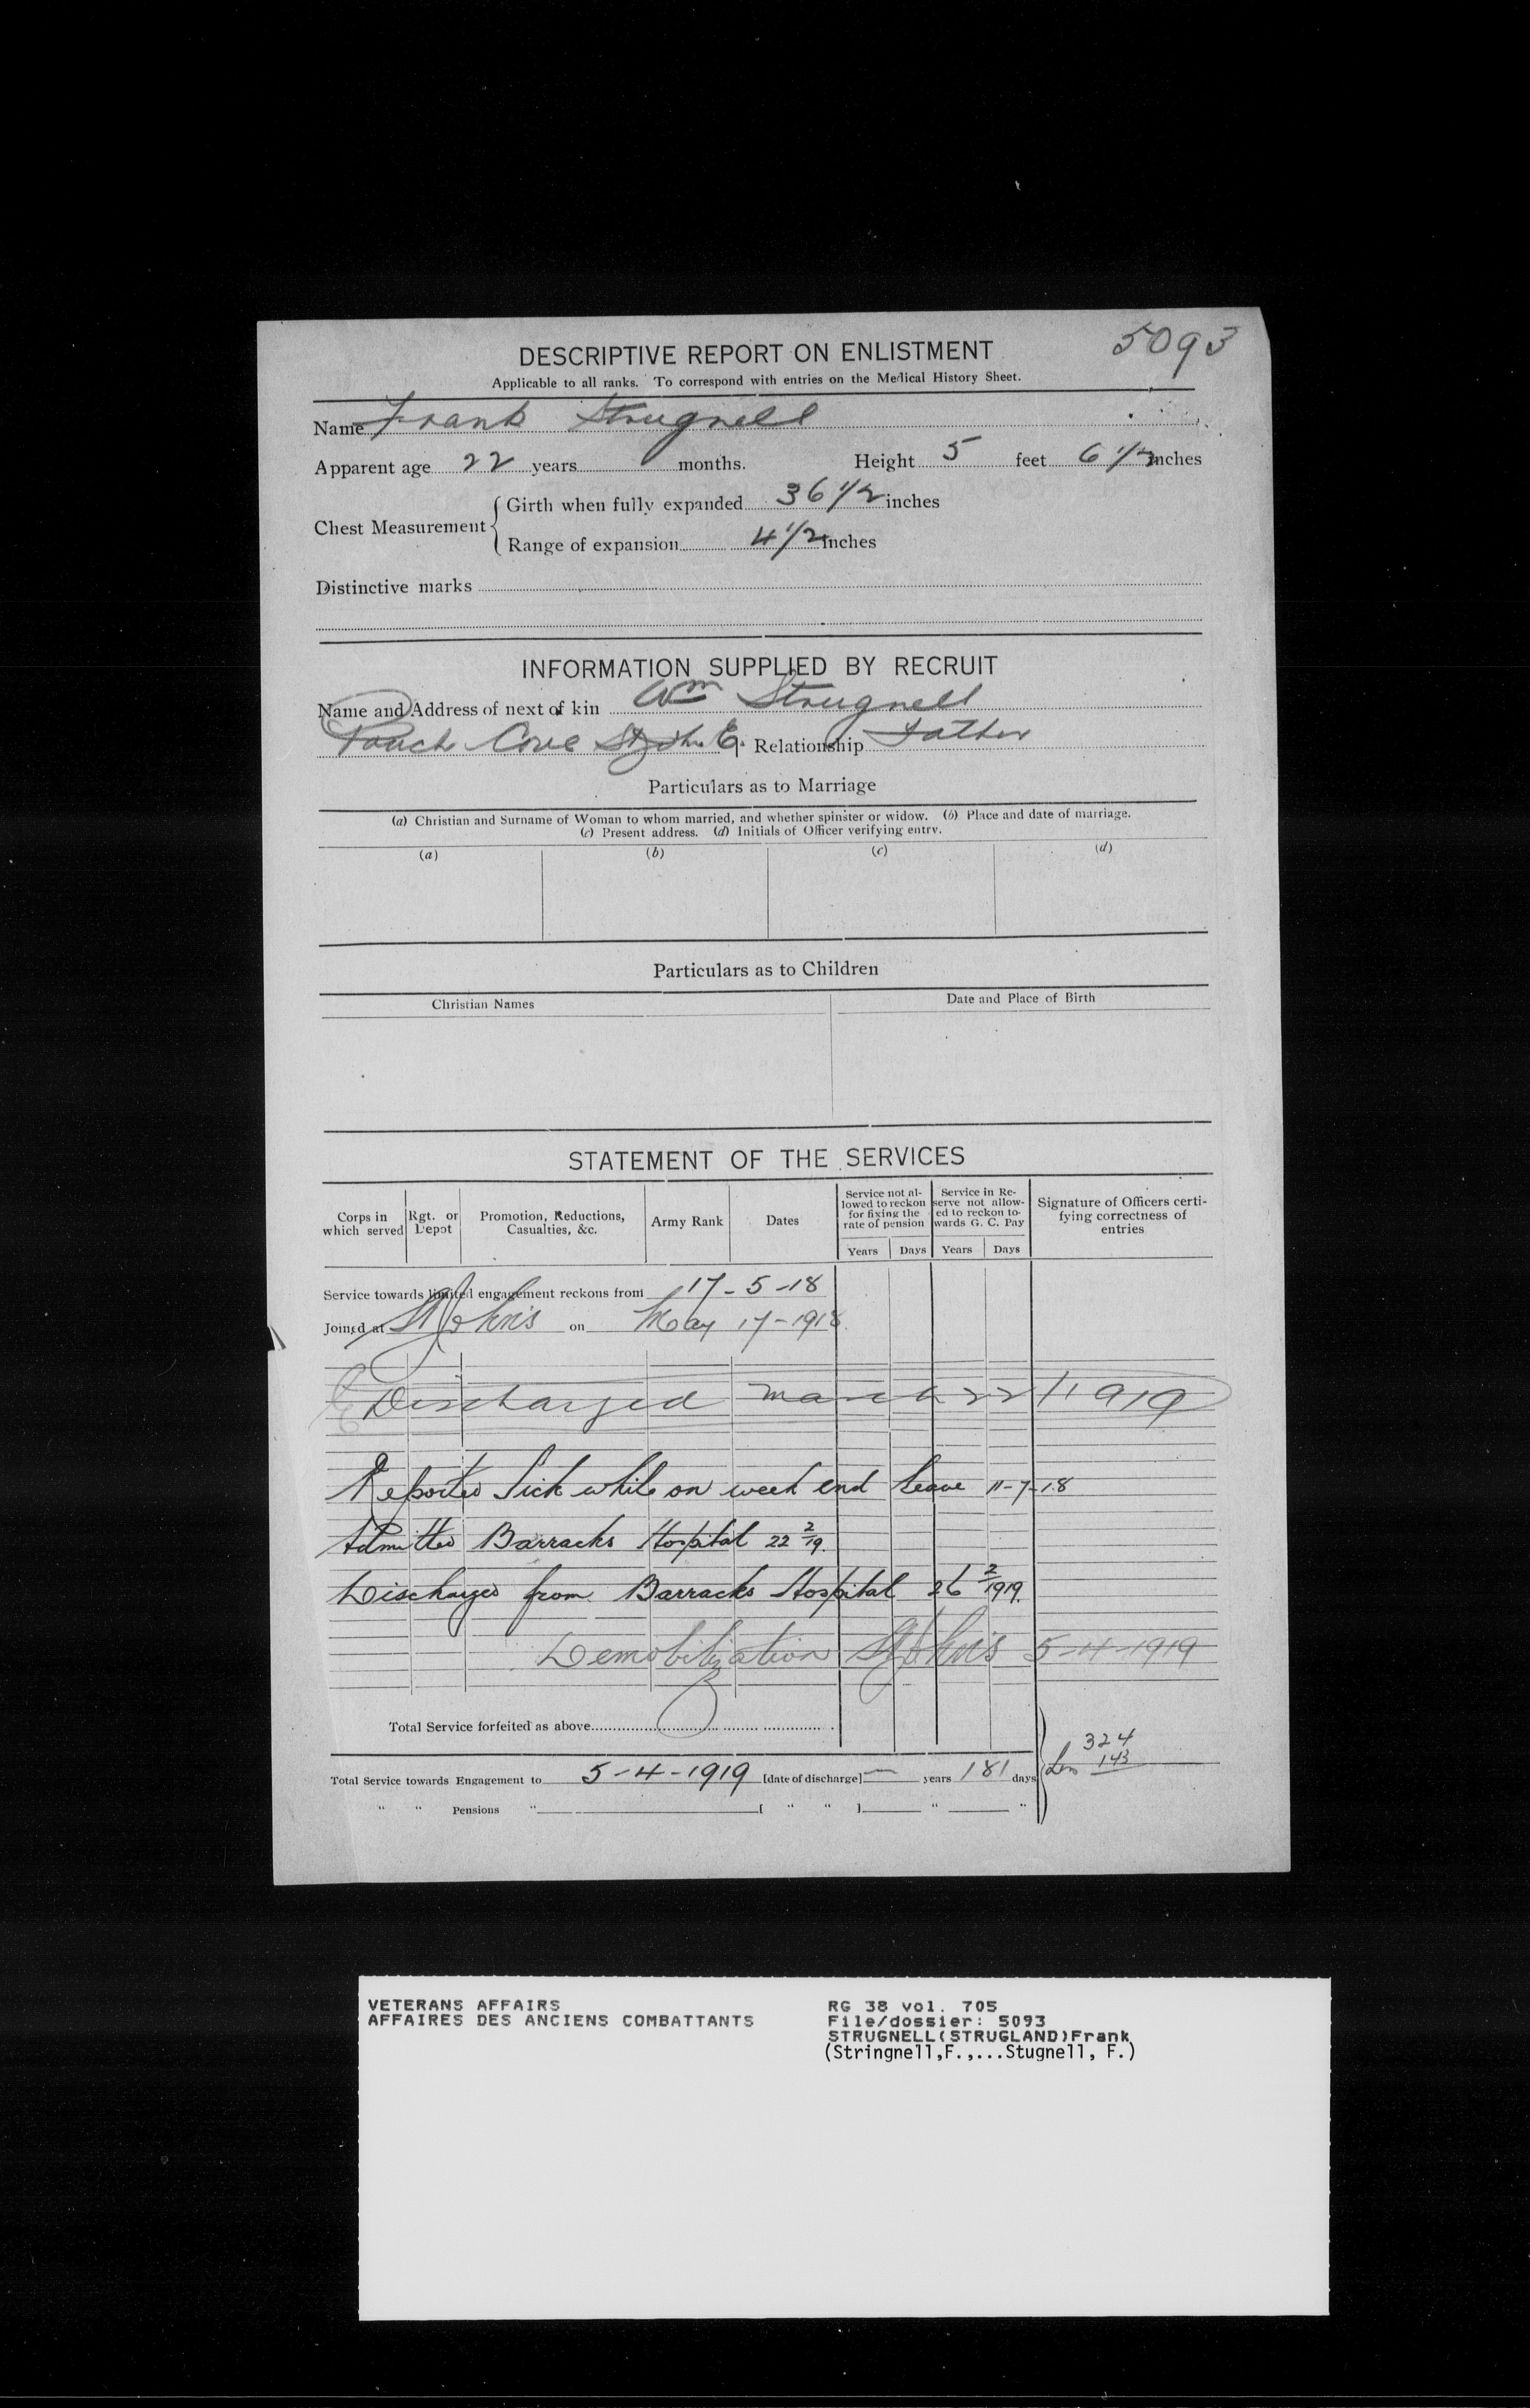 5093
DESCRIPTIVE REPORT ON ENLISTMENT
Applicable to all ranks. To correspond with entries on the Medical History Sheet.
Name Frank Strugnell
Apparent age 22 years months. Height 5 feet 6 1/2 inches
Chest Measurement { Girth when fully expanded 36 1/2 inches
Range of expansion 4 1/2 inches
Distinctive marks
INFORMATION SUPPLIED BY RECRUIT
Name and Address of next of kin Wm Strugnell
Pouch Cove E. Relationship Father
Particulars as to Marriage
(a) Christian and Surname of Woman to whom married, and whether spinster or widow. (b) Place and date of marriage.
(c) Present address. (d) Initials of Officer verifying entry.
(a) (b) (c) (d)
Particulars as to Children
Christian Names Date and Place of Birth
STATEMENT OF THE SERVICES
Corps in which served Rgt. or Depot Promotion, Reductions, Casualties, &c. Army Rank Dates Service not allowed to reckon for fixing the rate of pension Service in Reserve not allowed to reckon towards G. C. Pay Signature of Officers certifying correctness of entries
Years Days Years Days
Service towards limited engagement reckons from 17-5-18
Joined at St Johns on May 17-1918
Discharged March 22 1919
Reported Sick while on week end leave 11-7-18
Admitted Barracks Hospital 22 2/19.
Discharged from Barracks Hospital 26 2/1919.
Demobilization St Johns 5-4-1919
Total Service forfeited as above
324
143
Total Service towards Engagement to 5-4-1919 [date of discharge] — years 181 days
" " Pensions " [ " " ] " "
VETERANS AFFAIRS
AFFAIRES DES ANCIENS COMBATTANTS
RG 38 vol. 705
File/dossier: 5093
STRUGNELL(STRUGLAND)Frank
(Stringnell,F.,...Stugnell, F.)